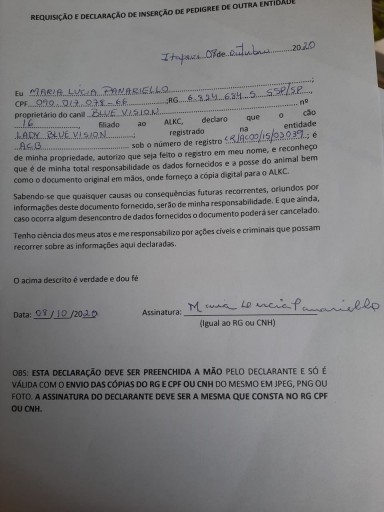 REQUISIÇÃO E DECLARAÇÃO DE INSERÇÃO DE PEDIGREE DE OUTRA ENTIDADE
Itapevi 08 de outubro 2020
Eu MARIA LUCIA PANARIELLO;
CPF 090.017.078-88;RG 6.324.684-5 SSP/SP,
proprietário do canil BLUE VISION, nº
16, filiado ao ALKC, declaro que o cão
LADY BLUE VISION, registrado na entidade
ACB sob o número de registro CR/AC00/15/03039; é
de minha propriedade, autorizo que seja feito o registro em meu nome, e reconheço
que é de minha total responsabilidade os dados fornecidos e a posse do animal bem
como o documento original em mãos, onde forneço a cópia digital para o ALKC.
Sabendo-se que quaisquer causas ou consequências futuras recorrentes, oriundos por
informações deste documento fornecido, serão de minha responsabilidade. E que ainda,
caso ocorra algum desencontro de dados fornecidos o documento poderá ser cancelado.
Tenho ciência dos meus atos e me responsabilizo por ações cíveis e criminais que possam
recorrer sobre as informações aqui declaradas.
O acima descrito é verdade e dou fé
Data: 08/10/2020 Assinatura: Maria Lucia Panariello
(Igual ao RG ou CNH)
OBS: ESTA DECLARAÇÃO DEVE SER PREENCHIDA A MÃO PELO DECLARANTE E SÓ É
VÁLIDA COM O ENVIO DAS CÓPIAS DO RG E CPF OU CNH DO MESMO EM JPEG, PNG OU
FOTO. A ASSINATURA DO DECLARANTE DEVE SER A MESMA QUE CONSTA NO RG CPF
OU CNH.